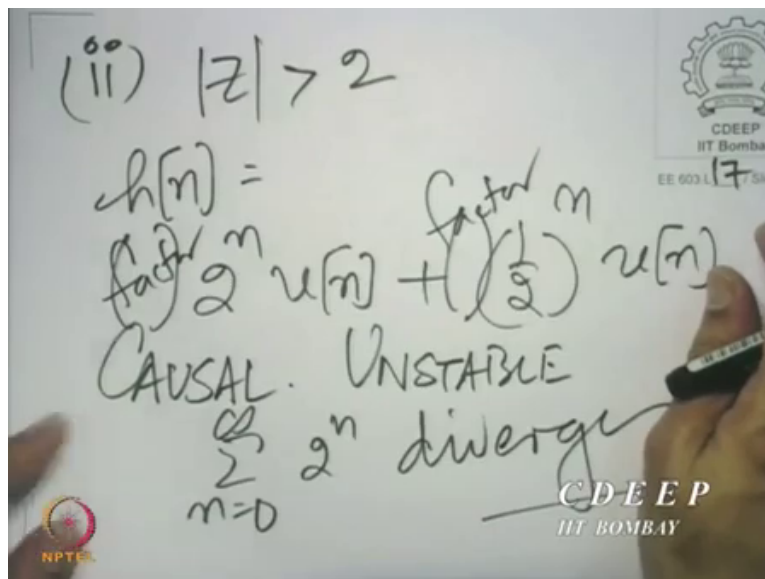 (ii) |Z| > 2
CDEEP
IIT Bombay
EE 603 L 17 / Sl
h[n] =
(factor) 2^n u[n] + (factor) (1/2)^n u[n]
CAUSAL. UNSTABLE
∞
Σ 2^n diverge
n=0
CDEEP
IIT BOMBAY
NPTEL